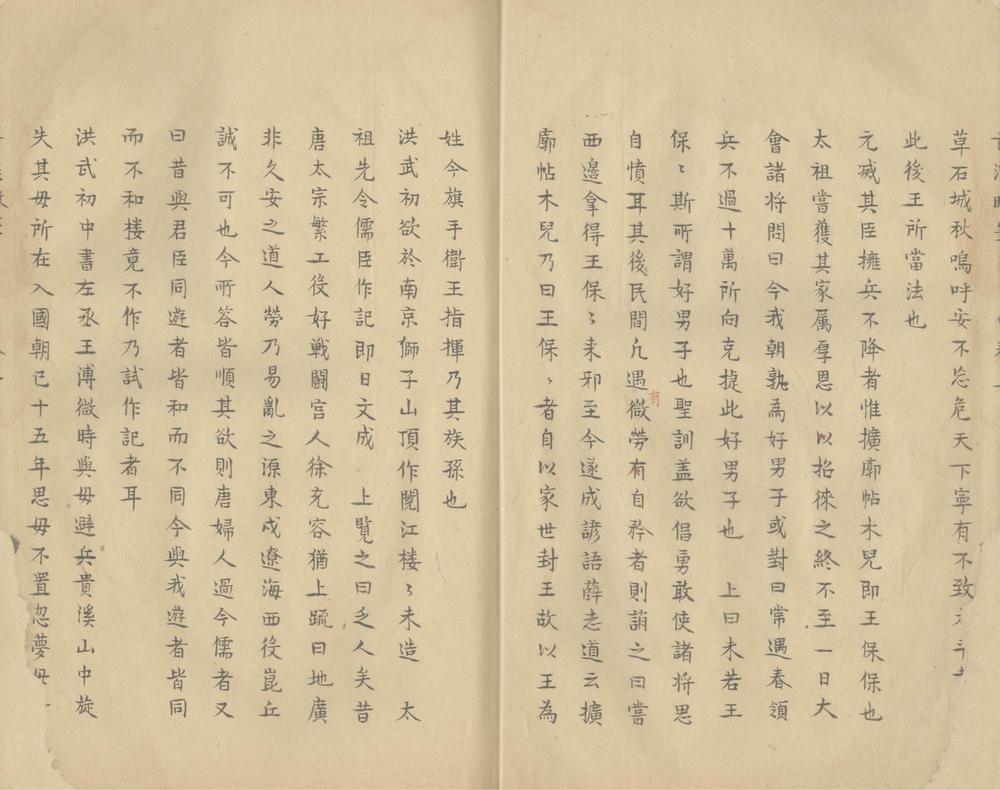 草石城秋嗚呼安不忘危天下寧有不致
此後王所當法也
元烕其臣擁兵不降者惟擴廓帖木兒即王保保也
太祖嘗獲其家属厚恩以以招徠之終不至一日大
會諸将問曰今我朝孰為好男子或對曰常遇春領
兵不過十萬所向克捷此好男子也　上曰未若王
保〻斯所謂好男子也聖訓盖欲倡勇敢使諸将思
自憤耳其後民間凢遇有微勞有自矜者則誚之曰嘗
西邉拿得王保〻来邪至今遂成諺語薛恚道云擴
廓帖木兒乃曰王保〻者自以家世封王故以王為
姓今旗手衛王指揮乃其族孫也
洪武初欲於南京獅子山頂作閱江楼〻未造　太
祖先令儒臣作記即日文成　上覽之曰乏人矣昔
唐太宗繁工役好戰鬪宫人徐充容猶上疏曰地廣
非久安之道人勞乃易亂之源東戍遼海西役崑丘
誠不可也今所答皆順其欲則唐婦人過今儒者又
曰昔與君臣同遊者皆和而不同今與我遊者皆同
而不和楼竟不作乃試作記者耳
洪武初中書左丞王溥微時與毋避兵貴溪山中旋
失其毋所在入國朝已十五年思毋不置忽夢毋